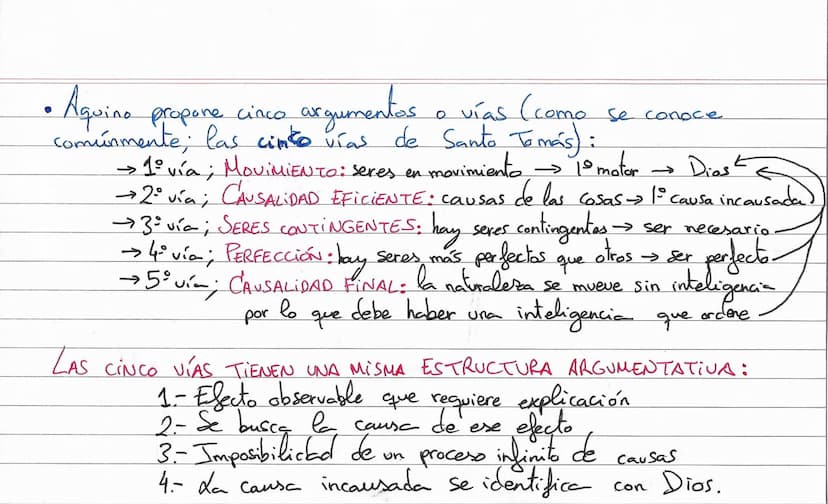 • Aquino propone cinco argumentos o vías (como se conoce
comúnmente; las cinco vías de Santo Tomás):
→ 1º vía; MOVIMIENTO: seres en movimiento → 1º motor → Dios
→ 2º vía; CAUSALIDAD EFICIENTE: causas de las cosas → 1º causa incausada
→ 3º vía; SERES CONTINGENTES: hay seres contingentes → ser necesario
→ 4º vía; PERFECCIÓN: hay seres más perfectos que otros → ser perfecto
→ 5º vía; CAUSALIDAD FINAL: la naturaleza se mueve sin inteligencia
por lo que debe haber una inteligencia que ordene
LAS CINCO VÍAS TIENEN UNA MISMA ESTRUCTURA ARGUMENTATIVA:
1.- Efecto observable que requiere explicación
2.- Se busca la causa de ese efecto
3.- Imposibilidad de un proceso infinito de causas
4.- La causa incausada se identifica con Dios.